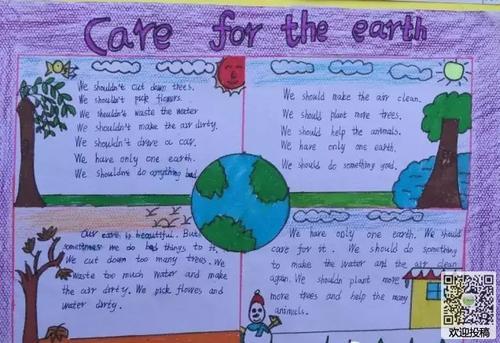 Care for the earth
We shouldn't cut down trees.
We shouldn't pick flowers.
We shouldn't waste the water
We shouldn't make the air dirty.
We shouldn't drive a car.
We have only one earth.
We shouldn't do anything bad.
We should make the air clean.
We should plant more trees.
We should help the animals.
We have only one earth.
We should do something good.
Our earth is beautiful. But
sometimes we do bad things to it.
We cut down too many trees. We
waste too much water and make
the air dirty. We pick flowers and
water dirty.
We have only one earth. We should
care for it. We should do something
to make the water and the air clean
again. We shouldn plant more
more trees and help the many
animals.
欢迎投稿